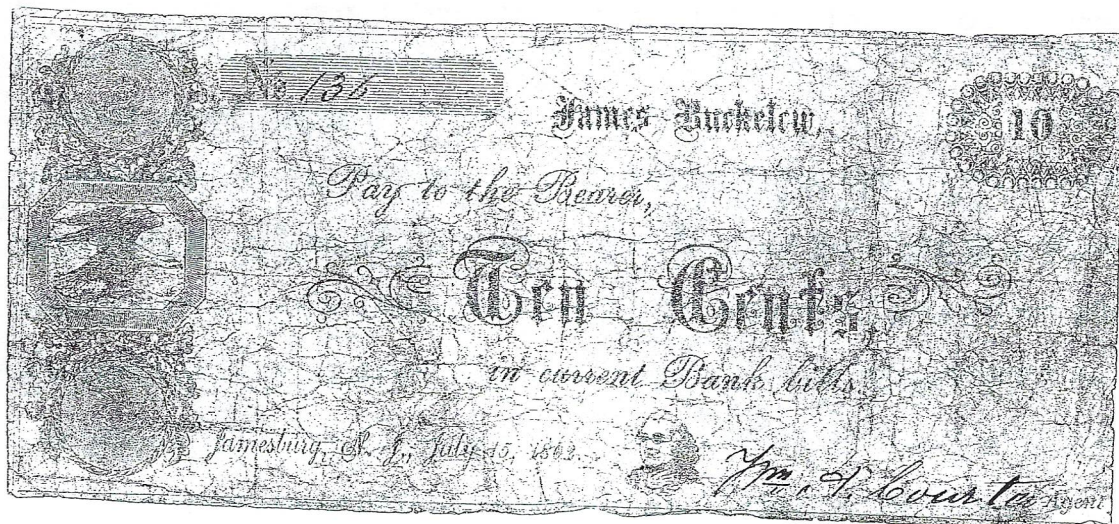 No. 136
James Buckelew,
10
Pay to the Bearer,
Ten Cents,
in current Bank bills.
Jamesburg, N. J., July 15, 1862.
Wm. Agent